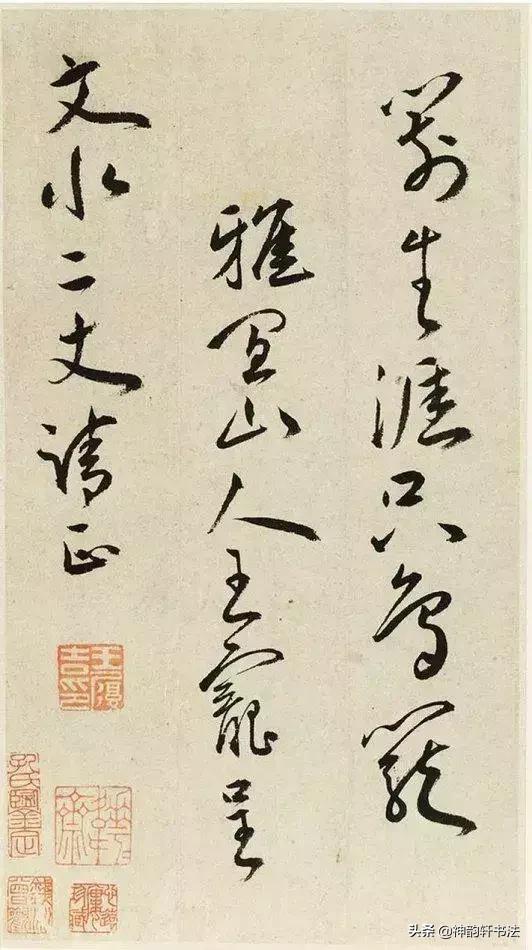 箭生涯只鳥籠
雅宜山人王寵呈
文水二丈請正
王履吉印
头条 @神韵轩书法